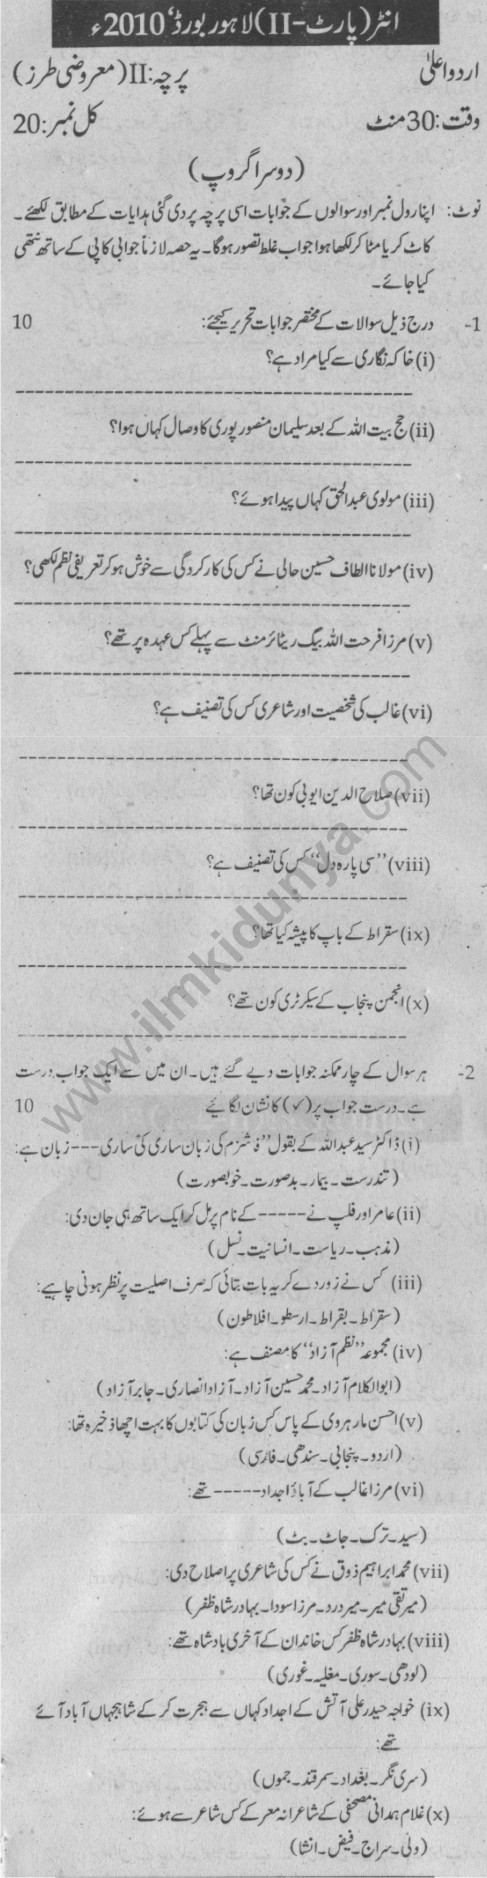 انٹر (پارٹ-II) لاہور بورڈ، 2010ء
اردو اعلیٰ
پرچہ: II (معروضی طرز)
وقت: 30 منٹ
کل نمبر: 20
(دوسرا گروپ)
نوٹ: اپنا رول نمبر اور سوالوں کے جوابات اسی پرچہ پر دی گئی ہدایات کے مطابق لکھئے۔
کاٹ کر یا مٹا کر لکھا ہوا جواب غلط تصور ہوگا۔ یہ حصہ لازماً جوابی کاپی کے ساتھ نتھی
کیا جائے۔
1- درج ذیل سوالات کے مختصر جوابات تحریر کیجئے: 10
(i) خاکہ نگاری سے کیا مراد ہے؟
(ii) حج بیت اللہ کے بعد سلیمان منصور پوری کا وصال کہاں ہوا؟
(iii) مولوی عبدالحق کہاں پیدا ہوئے؟
(iv) مولانا الطاف حسین حالی نے کس کی کارکردگی سے خوش ہوکر تعریفی نظم لکھی؟
(v) مرزا فرحت اللہ بیگ ریٹائرمنٹ سے پہلے کس عہدہ پر تھے؟
(vi) غالب کی شخصیت اور شاعری کس کی تصنیف ہے؟
(vii) صلاح الدین ایوبی کون تھا؟
(viii) "سی پارہ دل" کس کی تصنیف ہے؟
(ix) سقراط کے باپ کا پیشہ کیا تھا؟
(x) انجمن پنجاب کے سیکرٹری کون تھے؟
2- ہر سوال کے چار ممکنہ جوابات دیے گئے ہیں۔ ان میں سے ایک جواب درست
ہے۔ درست جواب پر (✓) کا نشان لگائیے 10
(i) ڈاکٹر سید عبداللہ کے بقول "فاشزم کی زبان ساری کی ساری --- زبان ہے:
(تندرست۔ بیمار۔ بدصورت۔ خوبصورت)
(ii) عامر اور فلپ نے ----- کے نام پر مل کر ایک ساتھ ہی جان دی:
(مذہب۔ ریاست۔ انسانیت۔ نسل)
(iii) کس نے زور دے کر یہ بات بتائی کہ صرف اصلیت پر نظر ہونی چاہیے:
(سقراط۔ بقراط۔ ارسطو۔ افلاطون)
(iv) مجموعہ "نظم آزاد" کا مصنف ہے:
(ابوالکلام آزاد۔ محمد حسین آزاد۔ آزاد انصاری۔ جابر آزاد)
(v) احسن مارہروی کے پاس کس زبان کی کتابوں کا بہت اچھا ذخیرہ تھا:
(اردو۔ پنجابی۔ سندھی۔ فارسی)
(vi) مرزا غالب کے آباؤ اجداد ----- تھے:
(سید۔ ترک۔ جاٹ۔ بٹ)
(vii) محمد ابراہیم ذوق نے کس کی شاعری پر اصلاح دی:
(میر تقی میر۔ میر درد۔ مرزا سودا۔ بہادر شاہ ظفر)
(viii) بہادر شاہ ظفر کس خاندان کے آخری بادشاہ تھے:
(لودھی۔ سوری۔ مغلیہ۔ غوری)
(ix) خواجہ حیدر علی آتش کے اجداد کہاں سے ہجرت کر کے شاہجہاں آباد آئے
تھے:
(سری نگر۔ بغداد۔ سمرقند۔ جموں)
(x) غلام ہمدانی مصحفی کے شاعرانہ معرکے کس شاعر سے ہوئے:
(ولی۔ سراج۔ فیض۔ انشا)
www.ilmkidunya.com